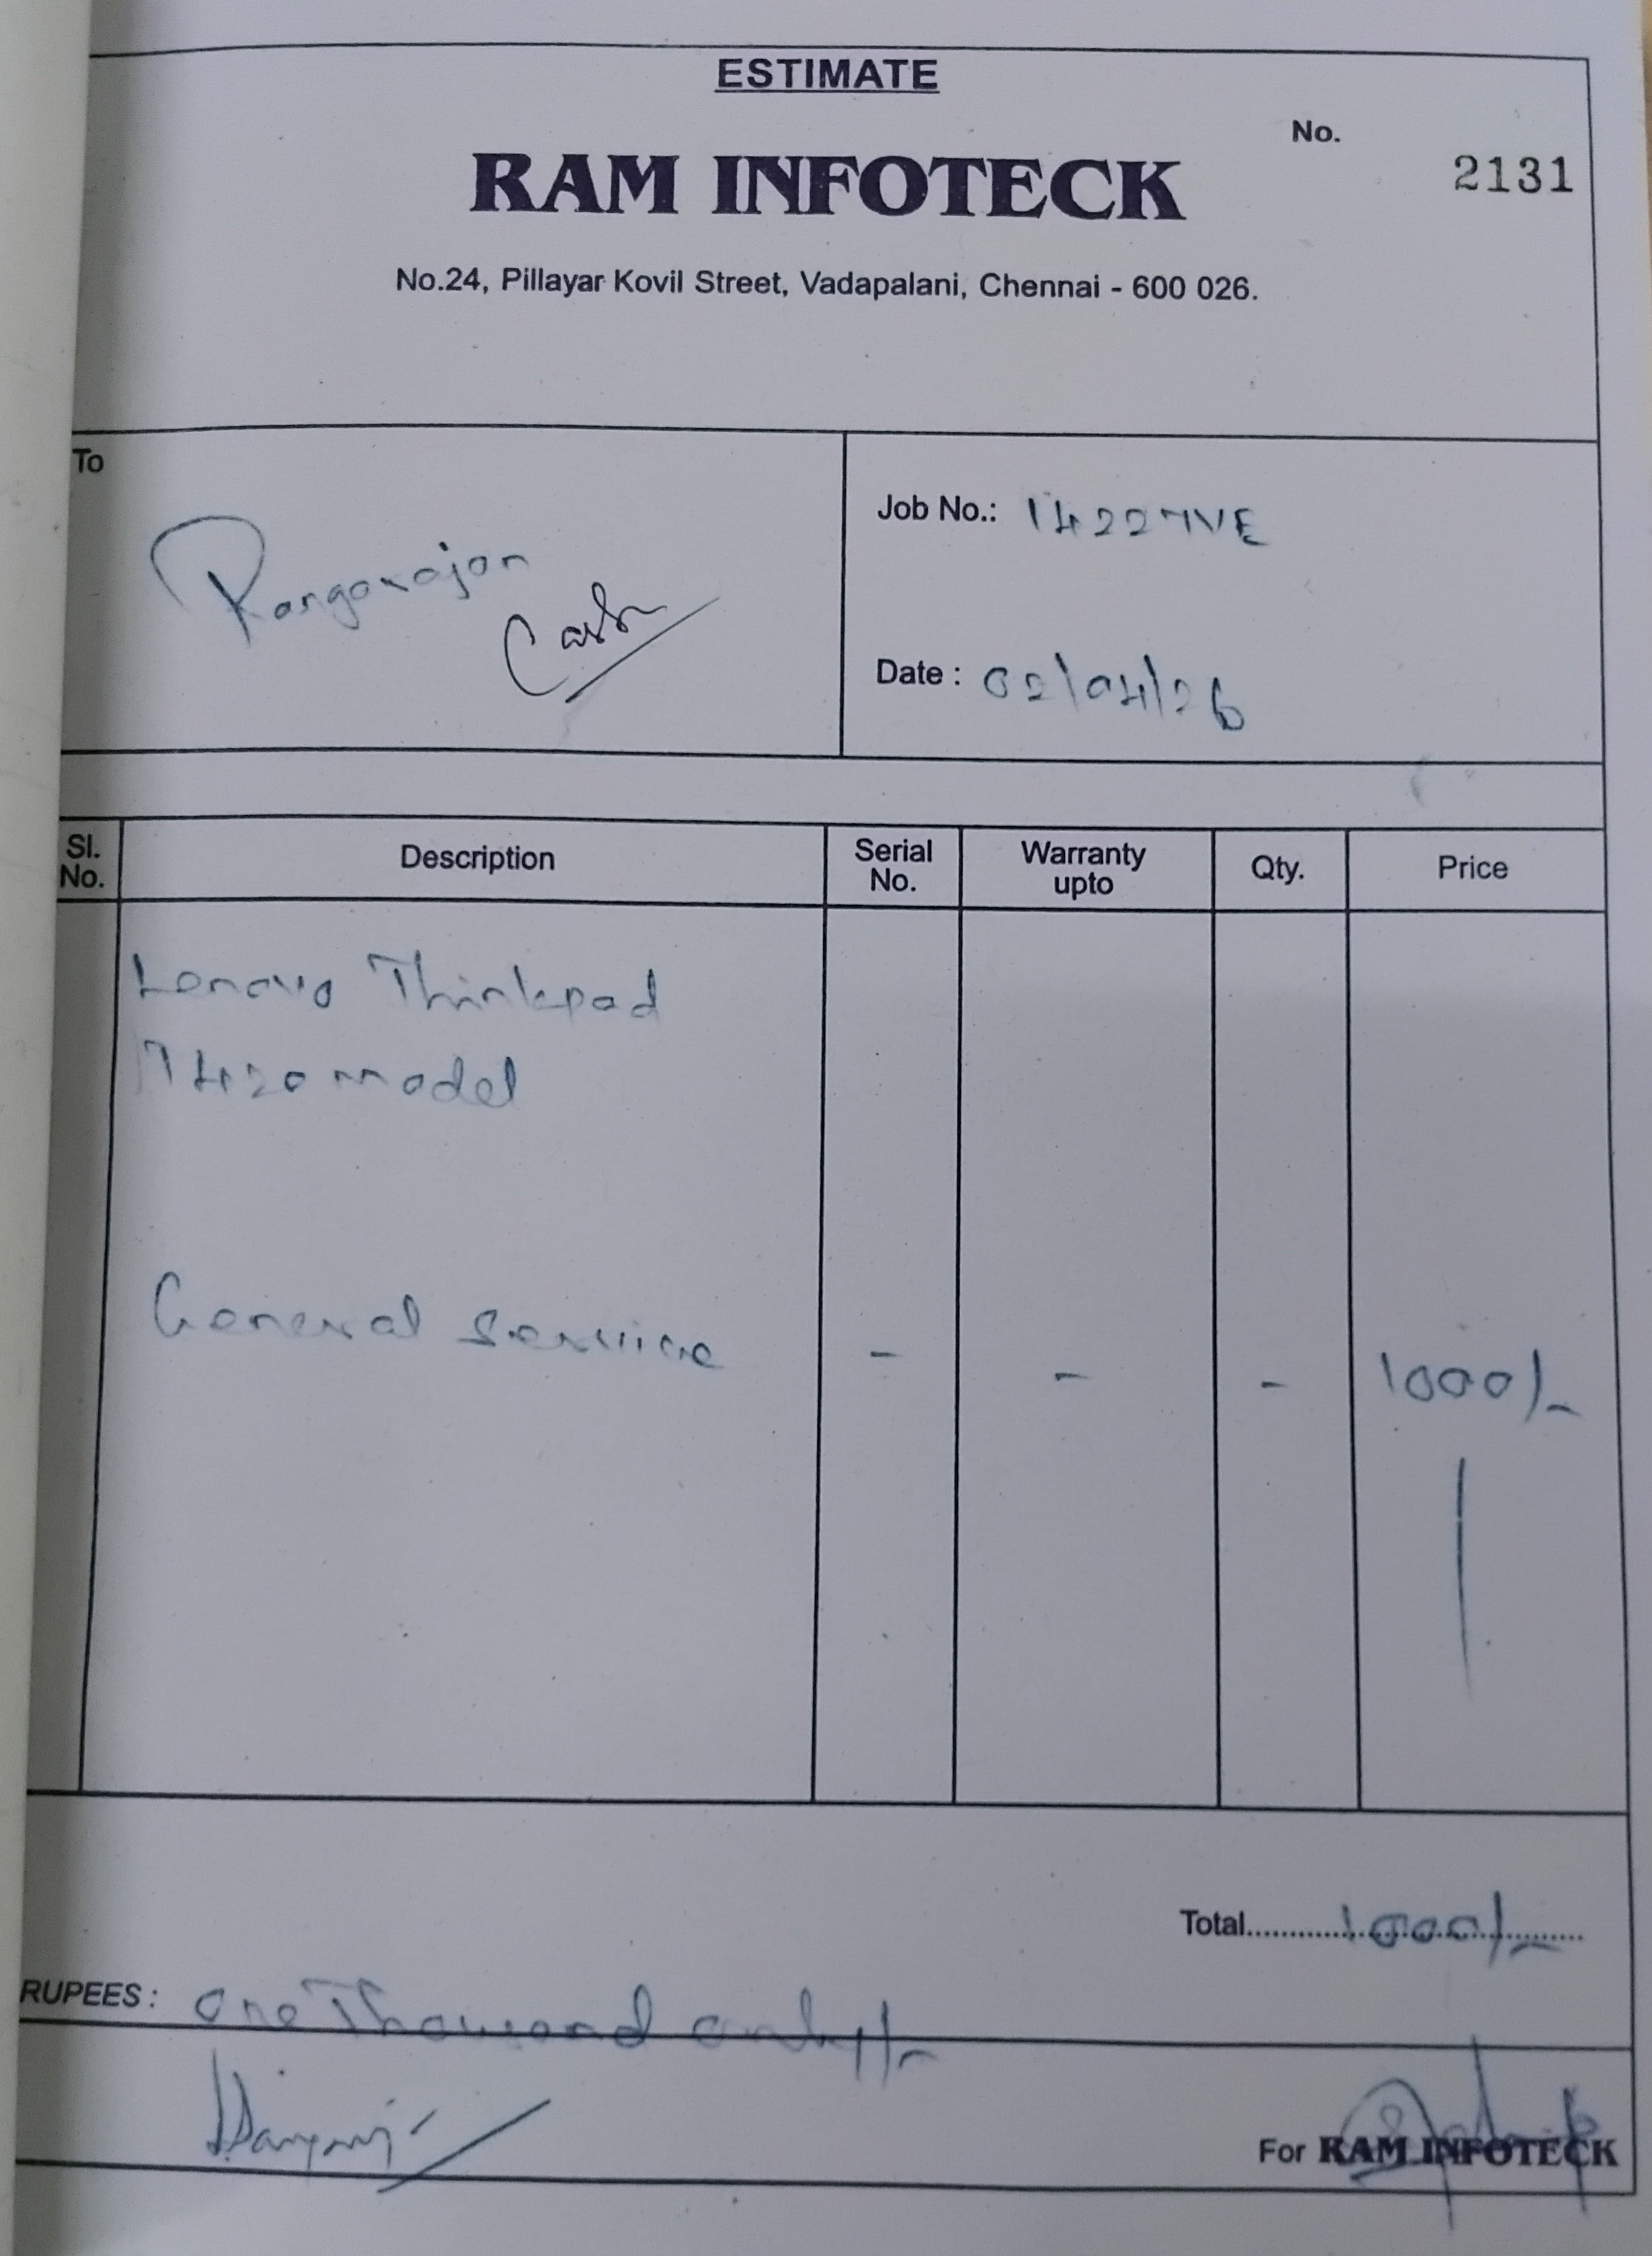 ESTIMATE
No.
2131
RAM INFOTECK
No.24, Pillayar Kovil Street, Vadapalani, Chennai - 600 026.
To
Rangarajan
Cash
Job No.: 14227VE
Date : 02/04/26
Sl. No. Description Serial No. Warranty upto Qty. Price
Lenovo Thinkpad
T420 model
General service - - - 1000/-
Total 1000/-
RUPEES : One Thousand only/-
For RAM INFOTECK